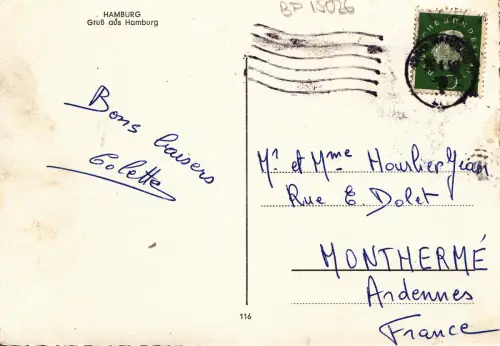 HAMBURG
Gruß aus Hamburg
BP 15026
Bons baisers
Colette
Mr et Mme Hourlier Jean
Rue E. Dolet
MONTHERMÉ
Ardennes
France
116